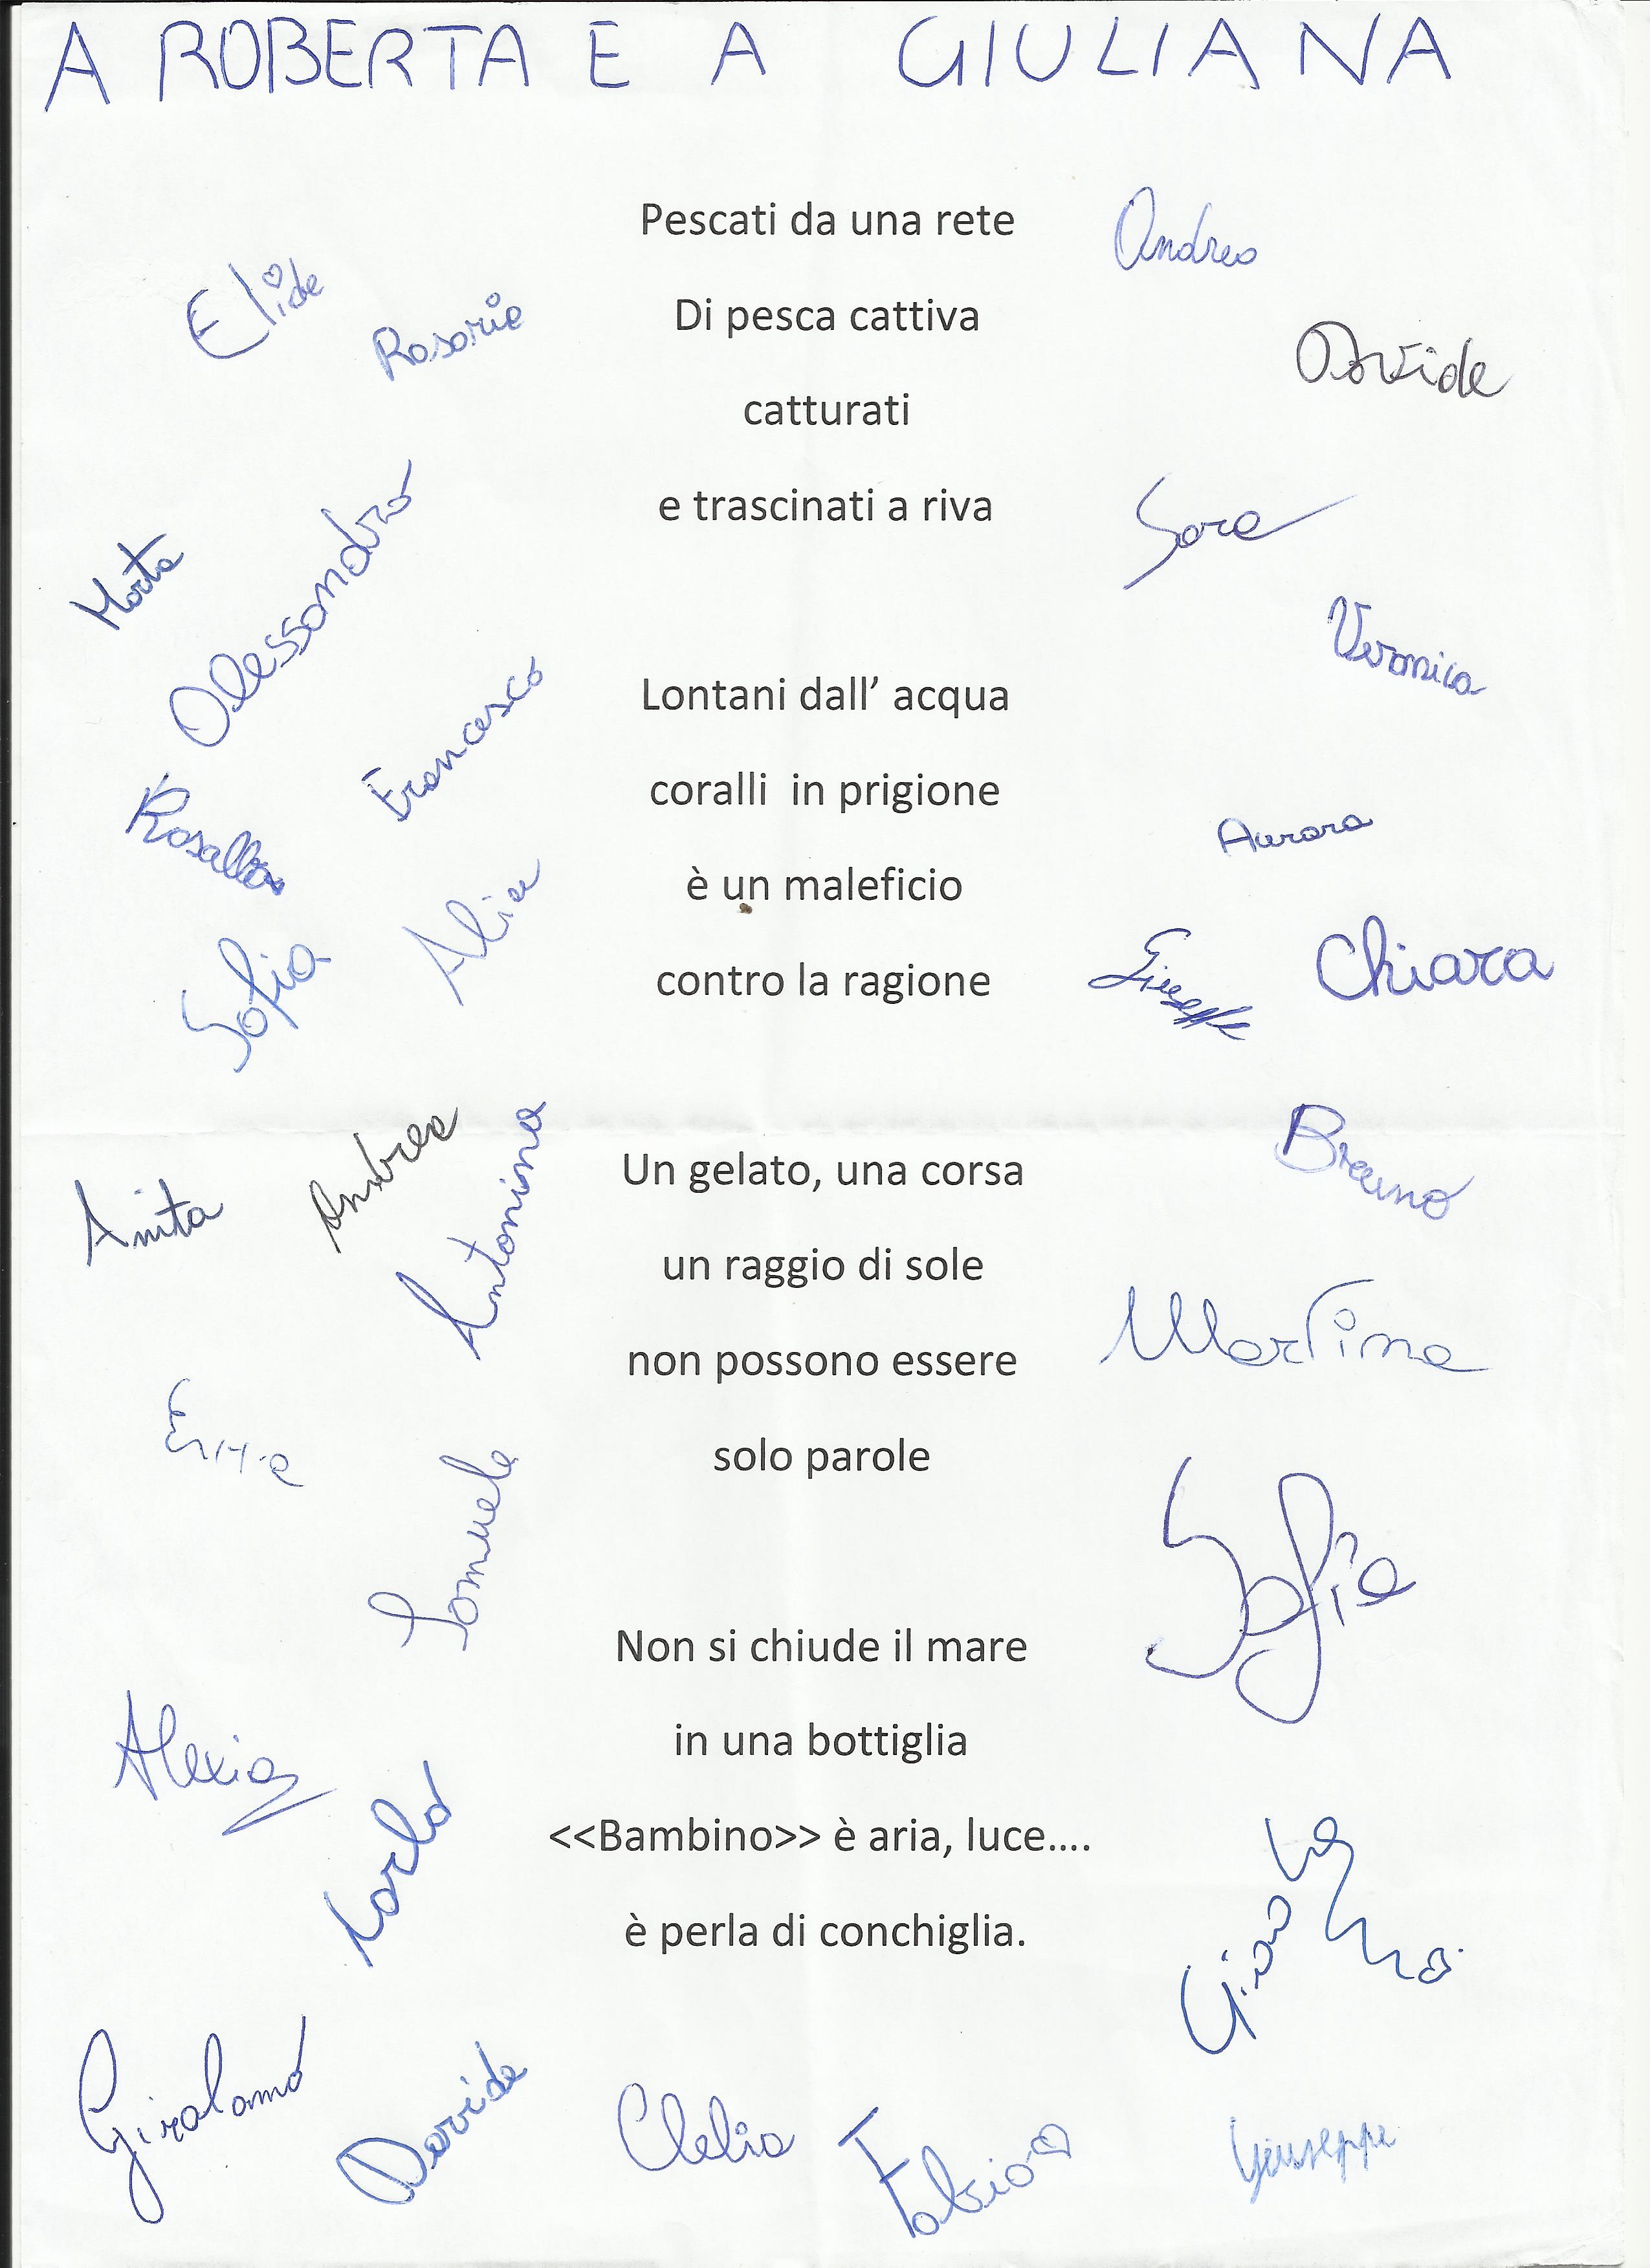 A ROBERTA E A GIULIANA
Pescati da una rete
Andrea
Elide
Rosario
Di pesca cattiva
Davide
catturati
e trascinati a riva
Sara
Marta
Alessandro
Veronica
Lontani dall’ acqua
Francesco
coralli  in prigione
Aurora
Rosalba
è un maleficio
Alice
contro la ragione
Giuseppe
Chiara
Sofia
Un gelato, una corsa
Bruno
Anita
Andrea
Antonina
un raggio di sole
non possono essere
Martina
solo parole
Samuele
Sofia
Non si chiude il mare
in una bottiglia
Alexia
<<Bambino>> è aria, luce....
Carlo
è perla di conchiglia.
Girolamo
Davide
Clelia
Fabio
Giuseppe